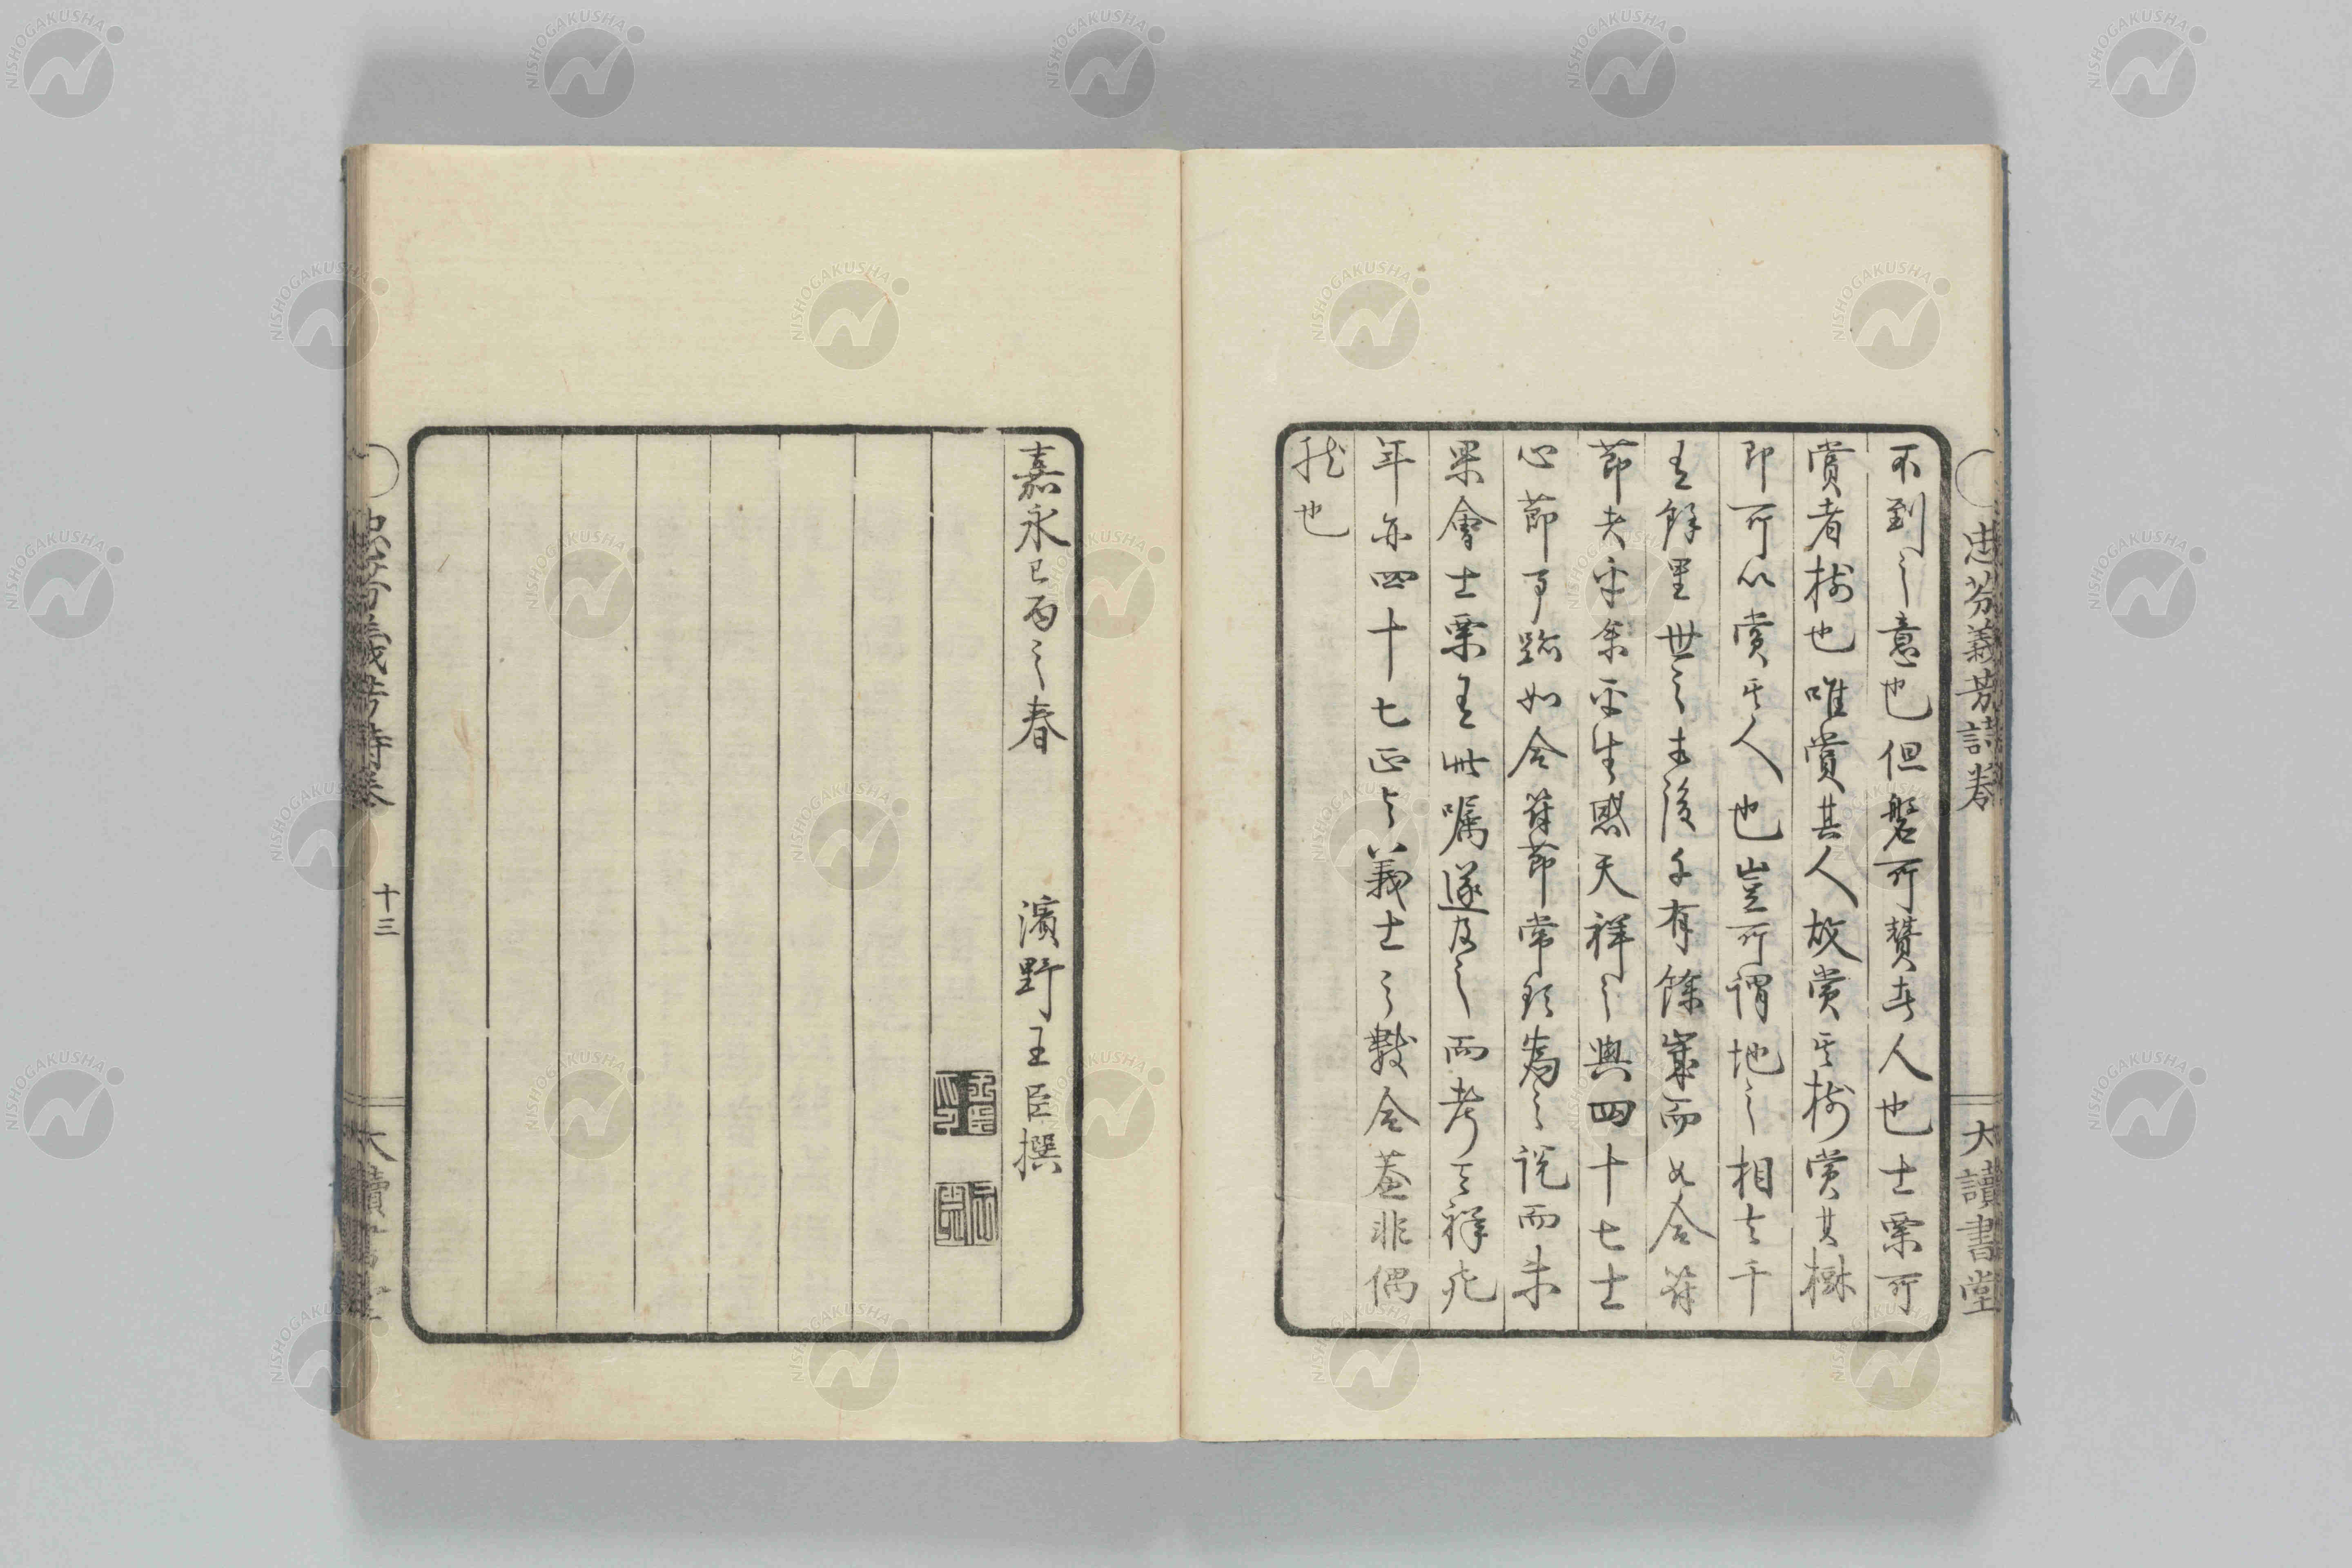 忠芬義芳詩卷
大讀書堂
不到之意也但磐所贊者人也士栗所
賞者樹也唯賞其人故賞其樹賞其樹
即所以賞其人也豈所謂地之相去千
有餘里世之相後千有餘歲而如合符
節者乎余平生感天祥之與四十七士
心節事跡如合符節常欲為之說而未
果會士栗有此囑遂及之而考天祥死
年亦四十七正與義士之數合蓋非偶
然也
嘉永己酉之春 濱野王臣撰
忠芬義芳詩卷
十三
大讀書堂
NISHOGAKUSHA